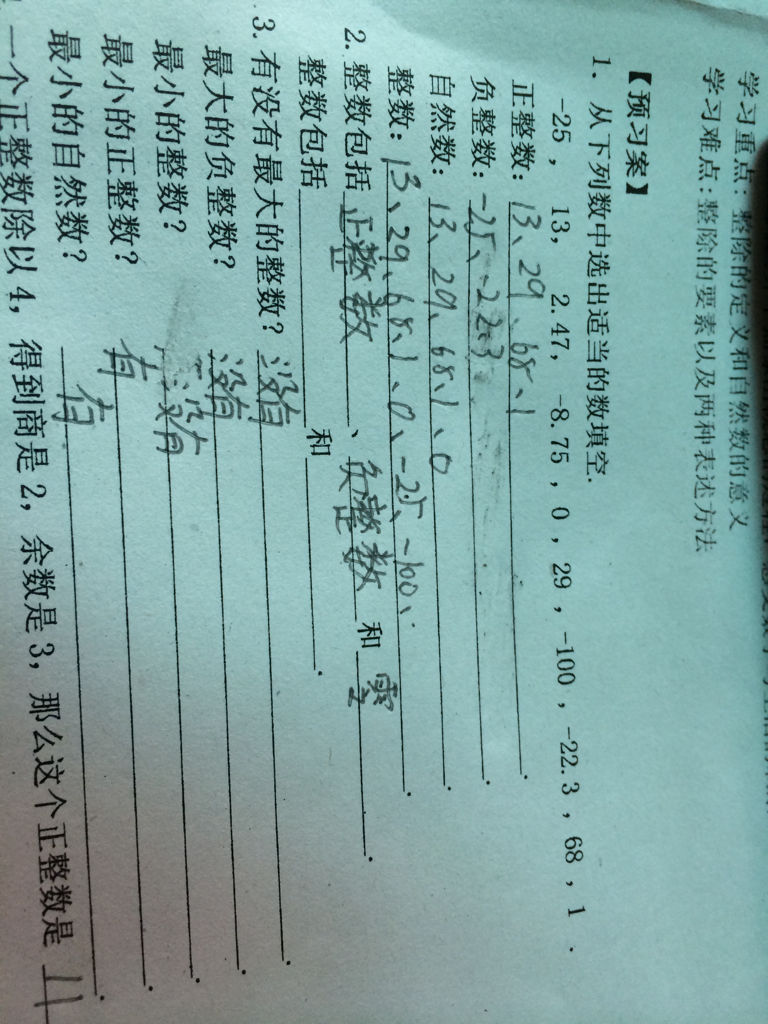 学习重点：整除的定义和自然数的意义
学习难点：整除的要素以及两种表述方法
【预习案】
1. 从下列数中选出适当的数填空.
-25, 13, 2.47, -8.75, 0, 29, -100, -22.3, 68, 1.
正整数：13、29、68、1.
负整数：-25、-22.3.
自然数：13、29、68、1、0.
整数：13、29、68、1、0、-25、-100、.
2. 整数包括 正整数、负整数 和 零.
整数包括 和 .
3. 有没有最大的整数？没有.
最大的负整数？没有.
最小的整数？没有.
最小的正整数？有.
最小的自然数？有.
一个正整数除以4，得到商是2，余数是3，那么这个正整数是 11